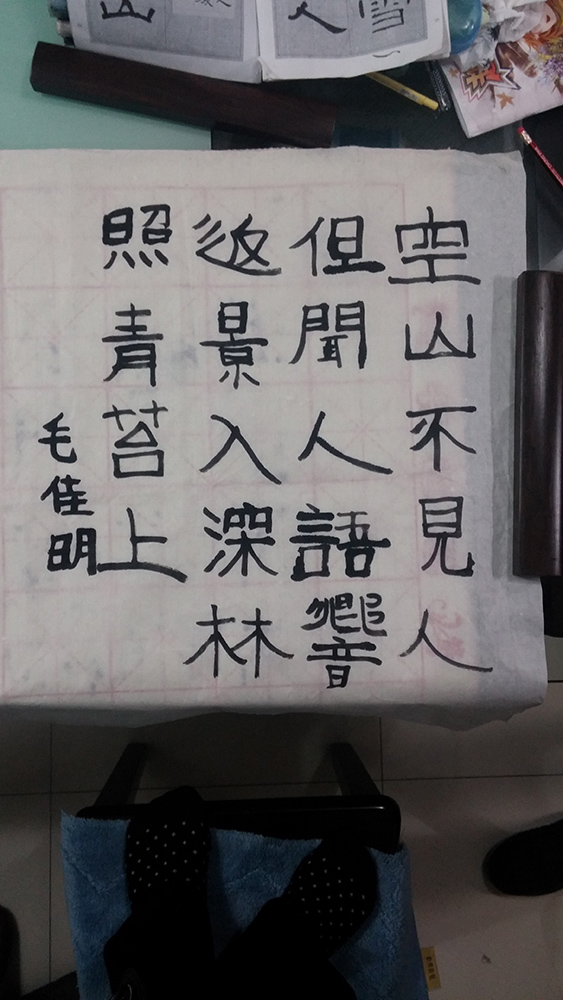 空山不見人
但聞人語響
返景入深林
照青苔上
毛佳明
雪
人
山